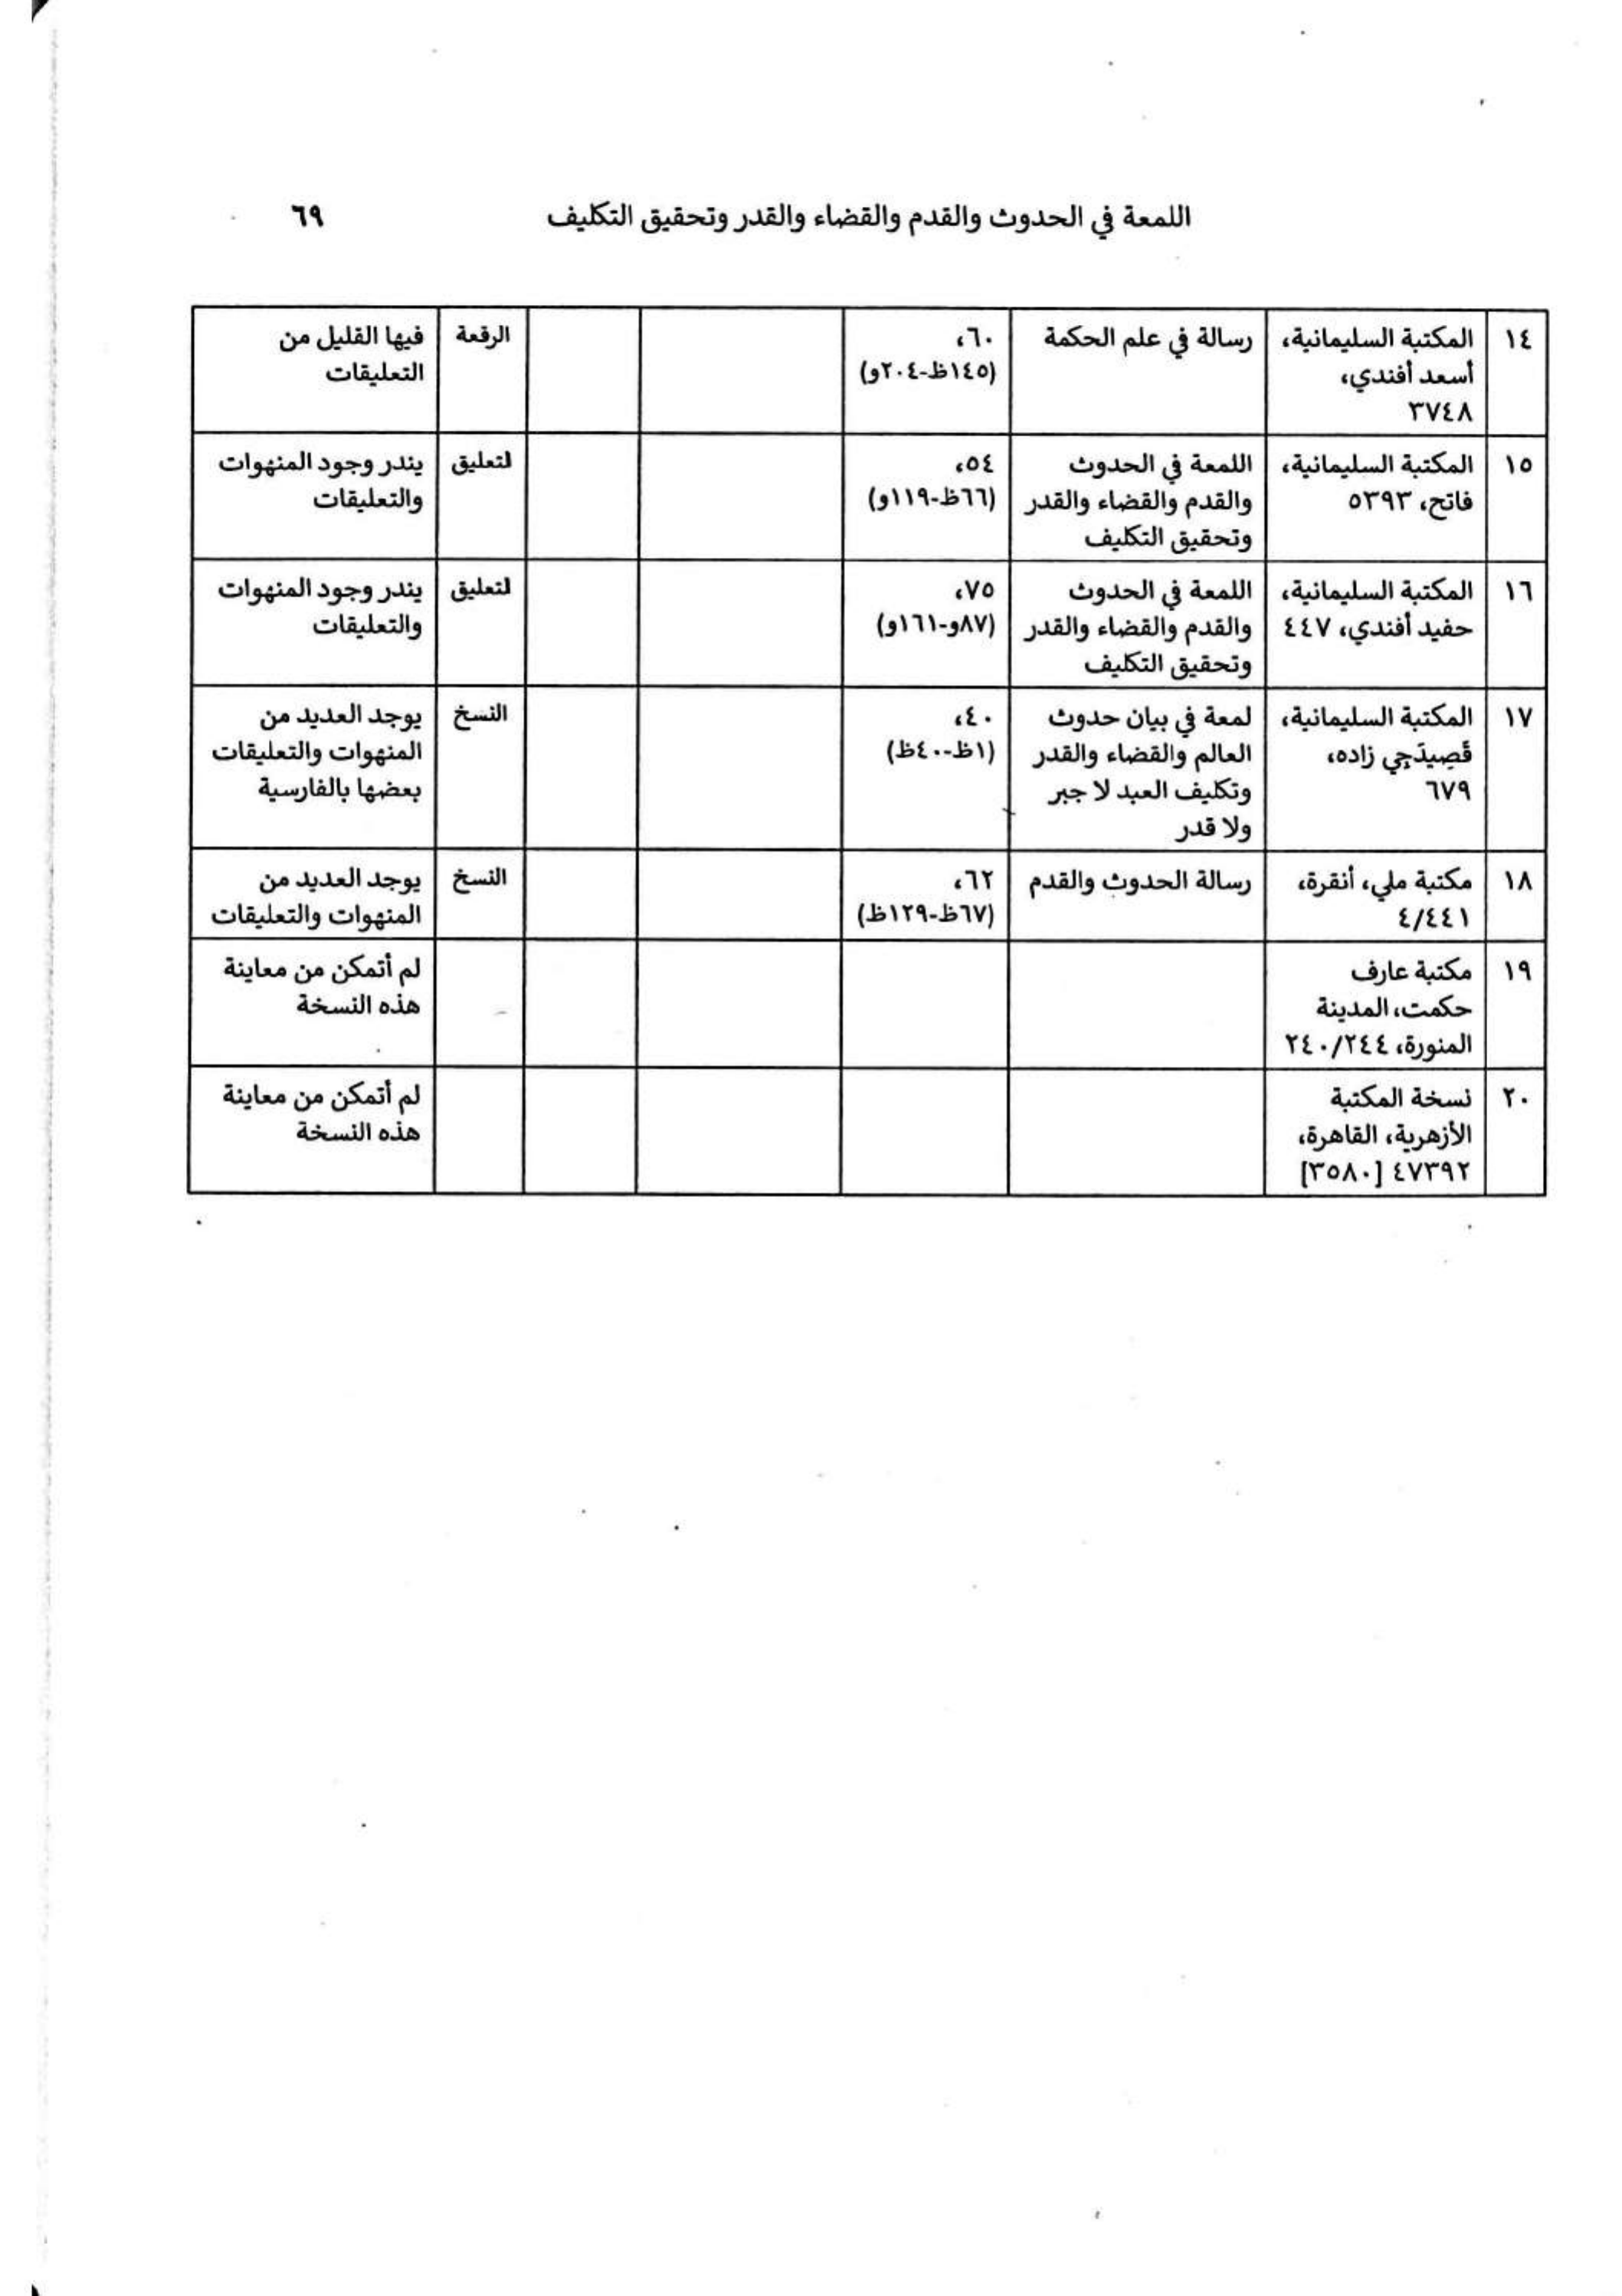 اللمعة في الحدوث والقدم والقضاء والقدر وتحقيق التكليف ٦٩
١٤
المكتبة السليمانية،
أسعد أفندي،
٣٧٤٨
رسالة في علم الحكمة
٦٠،
(١٤٥ظ-٢٠٤و)
الرقعة
فيها القليل من
التعليقات
١٥
المكتبة السليمانية،
فاتح، ٥٣٩٣
اللمعة في الحدوث
والقدم والقضاء والقدر
وتحقيق التكليف
٥٤،
(٦٦ظ-١١٩و)
لتعليق
يندر وجود المنهوات
والتعليقات
١٦
المكتبة السليمانية،
حفيد أفندي، ٤٤٧
اللمعة في الحدوث
والقدم والقضاء والقدر
وتحقيق التكليف
٧٥،
(٨٧و-١٦١و)
لتعليق
يندر وجود المنهوات
والتعليقات
١٧
المكتبة السليمانية،
قَصِيدَجِي زاده،
٦٧٩
لمعة في بيان حدوث
العالم والقضاء والقدر
وتكليف العبد لا جبر
ولا قدر
٤٠،
(١ظ-٤٠ظ)
النسخ
يوجد العديد من
المنهوات والتعليقات
بعضها بالفارسية
١٨
مكتبة ملي، أنقرة،
٤/٤٤١
رسالة الحدوث والقدم
٦٢،
(٦٧ظ-١٢٩ظ)
النسخ
يوجد العديد من
المنهوات والتعليقات
١٩
مكتبة عارف
حكمت، المدينة
المنورة، ٢٤٠/٢٤٤
لم أتمكن من معاينة
هذه النسخة
٢٠
نسخة المكتبة
الأزهرية، القاهرة،
٤٧٣٩٢ [٣٥٨٠]
لم أتمكن من معاينة
هذه النسخة